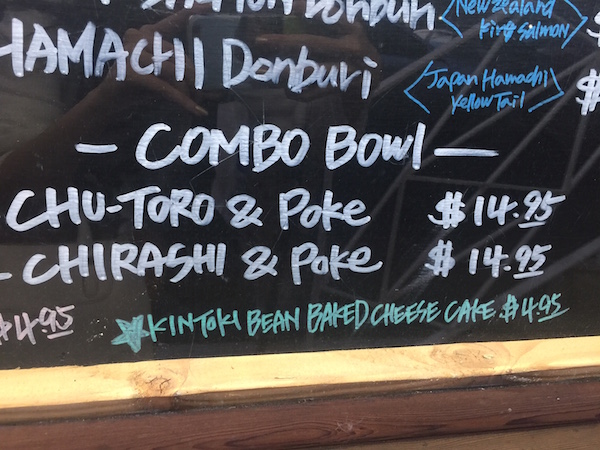 Donburi <New Zealand
King Salmon> $
HAMACHI Donburi <Japan Hamachi
Yellow Tail> $
— COMBO Bowl —
CHU-TORO & Poke $14.95
- CHIRASHI & Poke $14.95
$4.95 ☆KINTOKI BEAN BAKED CHEESE CAKE $4.95